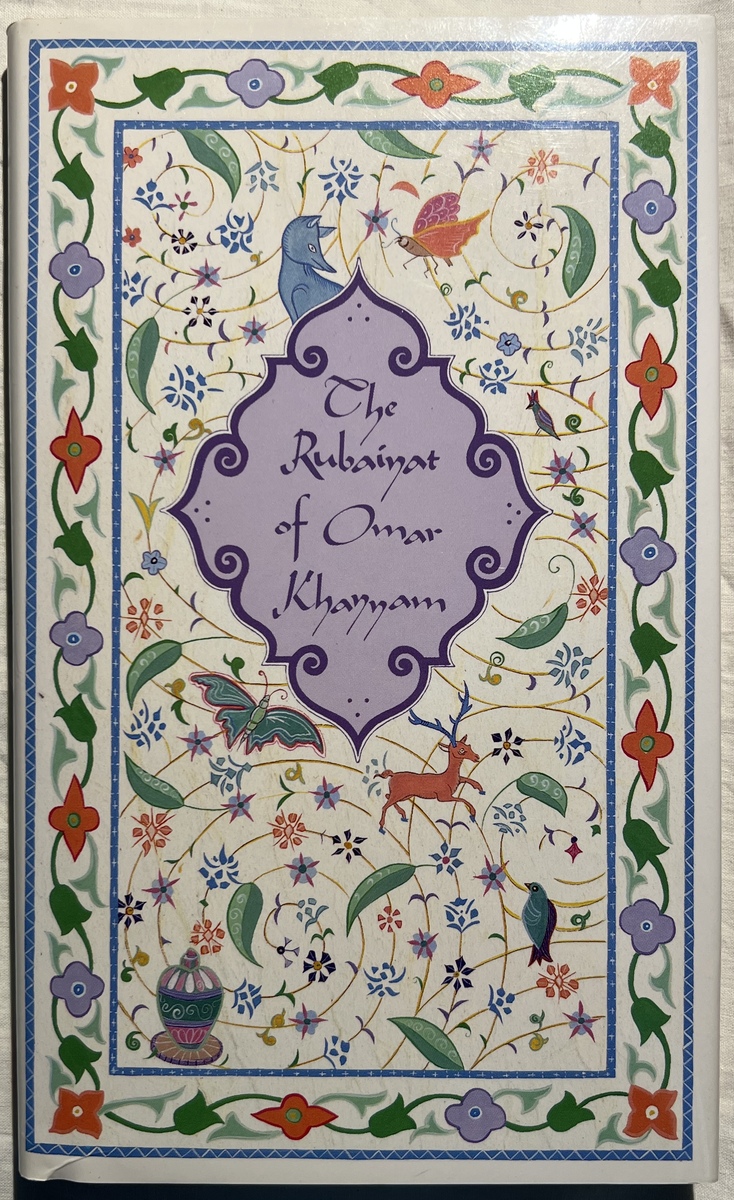 The
Rubaiyat
of Omar
Khayyam